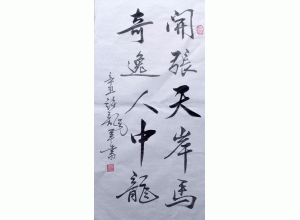 開張天岸馬
奇逸人中龍
辛丑